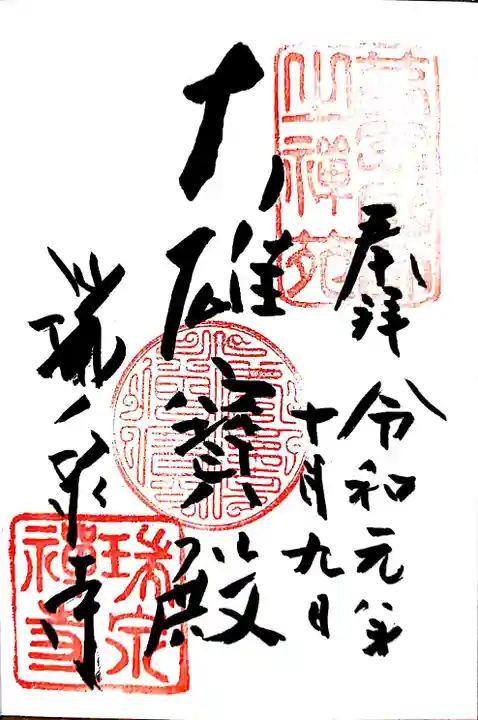 奉拝
令和元年
十月九日
大雄寳殿
瑞泉寺
山禅苑
瑞泉
禅寺